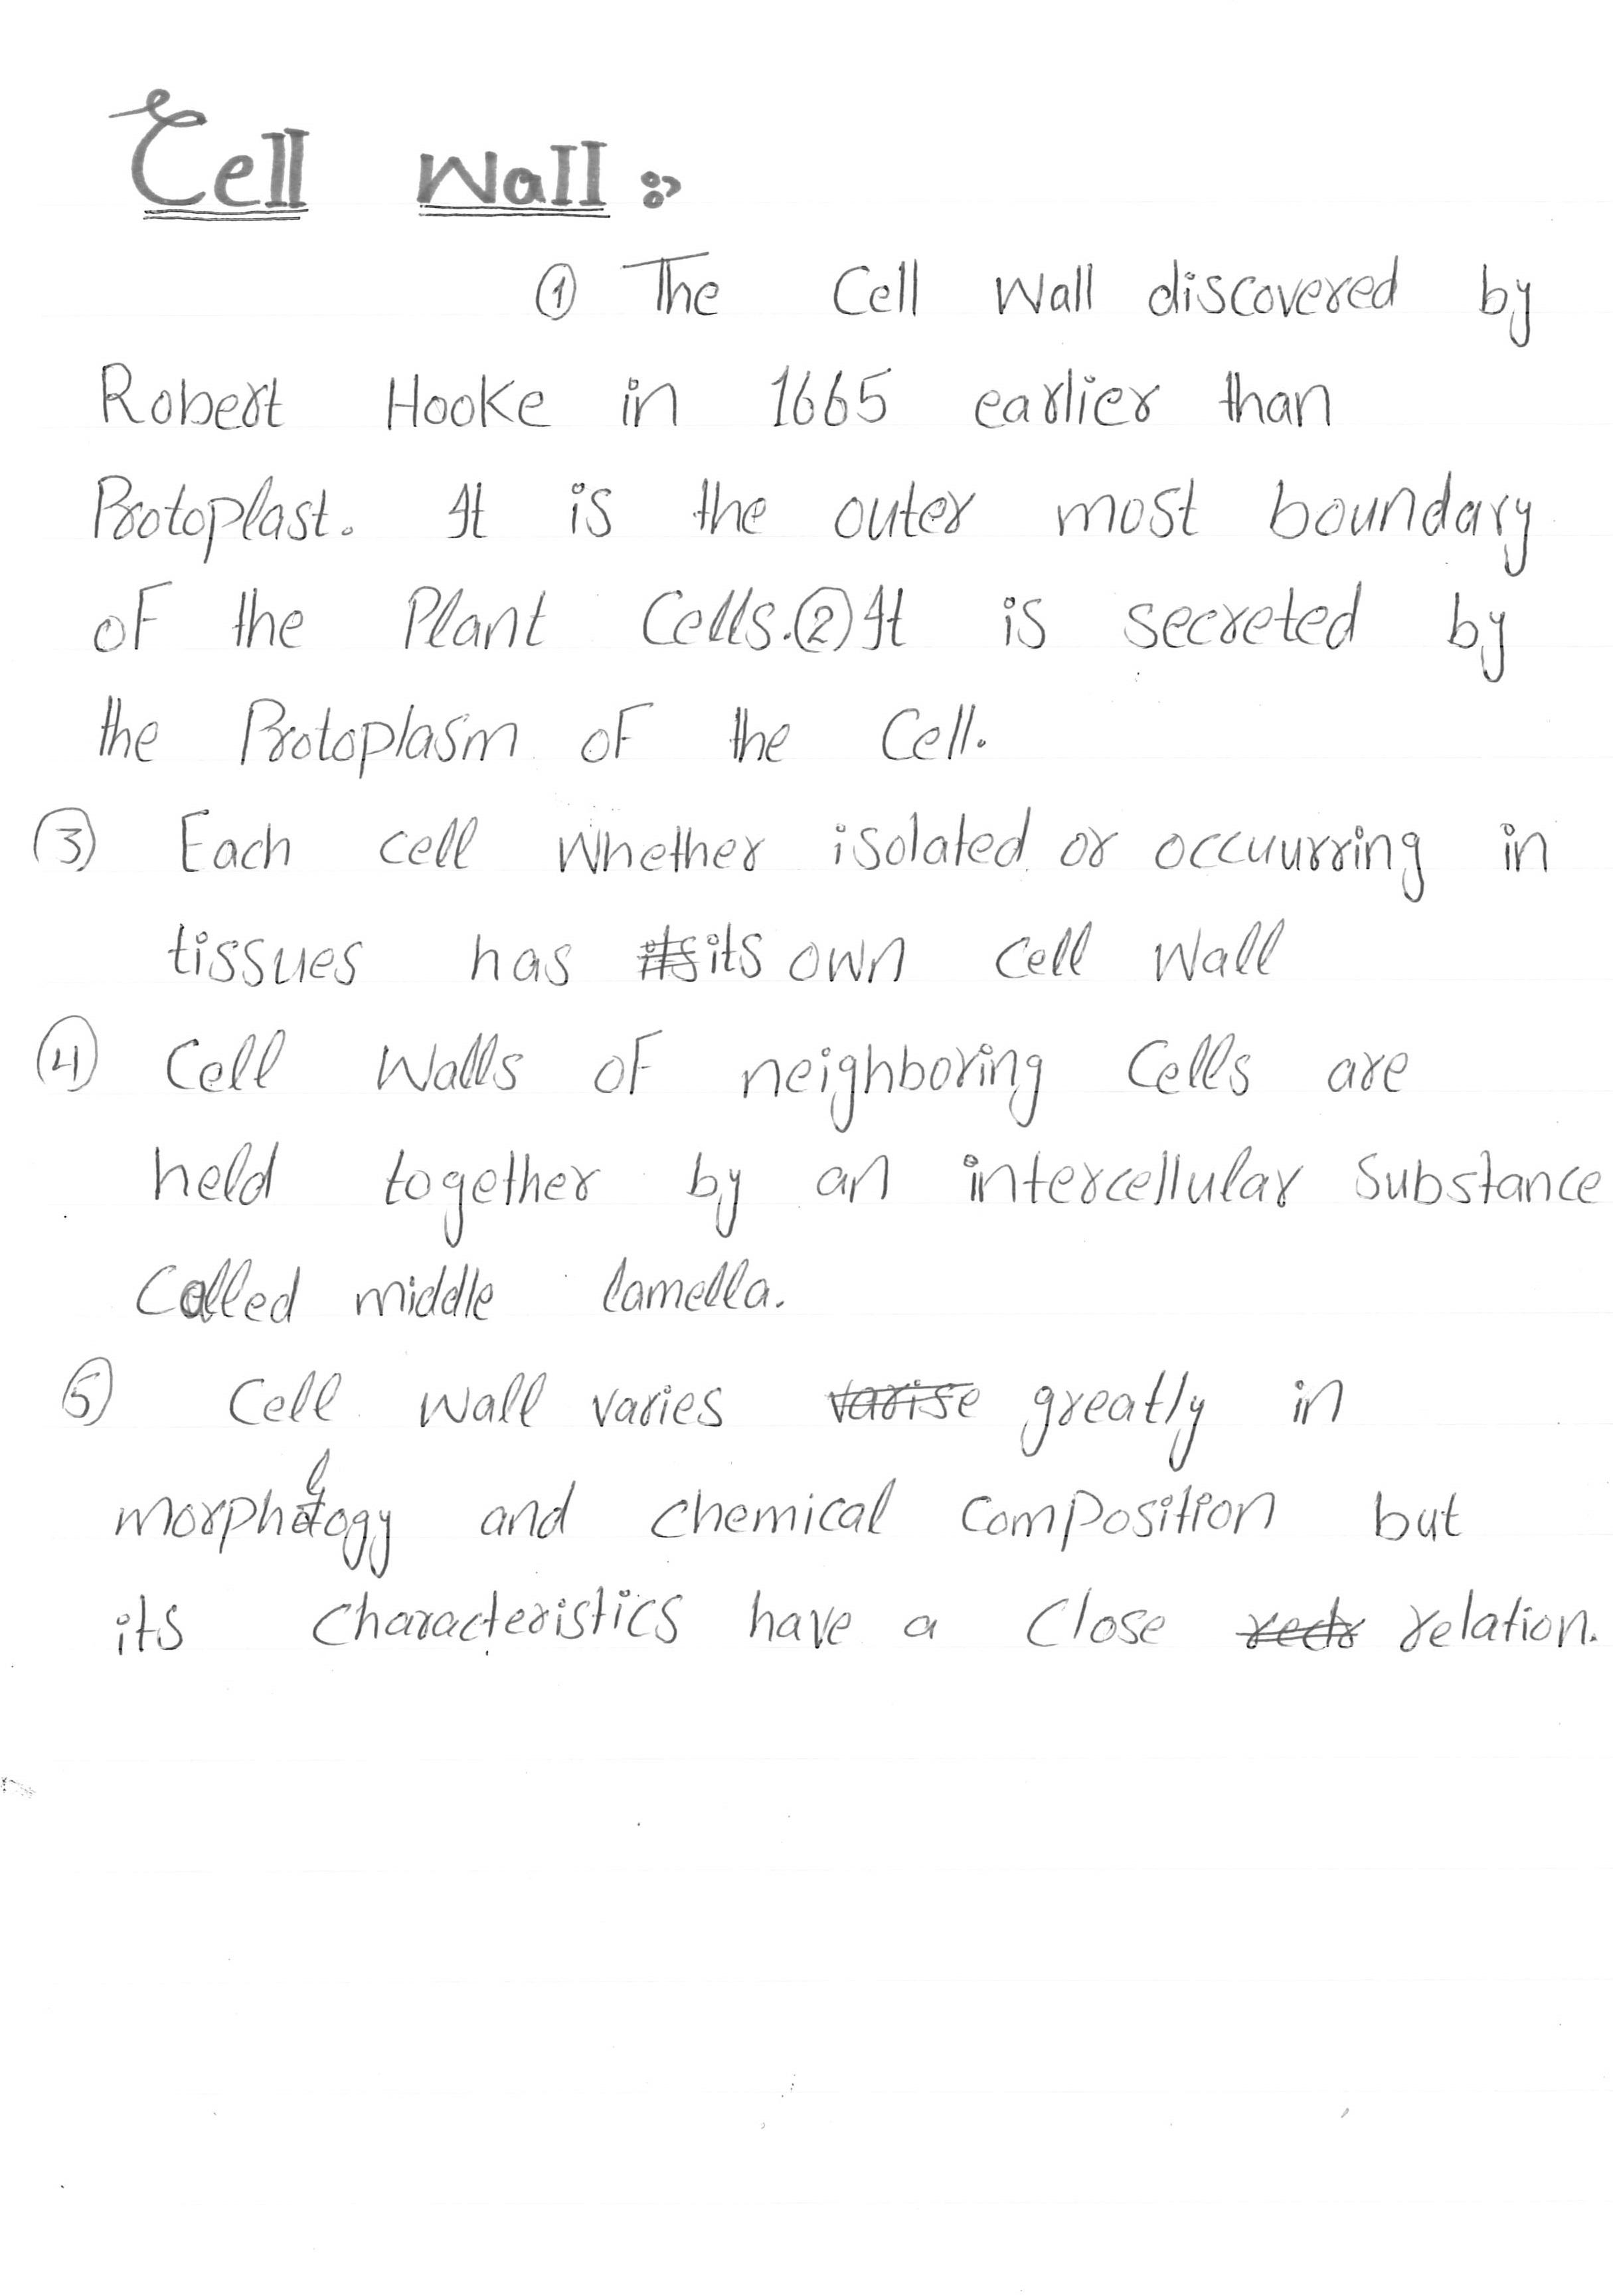 Cell Wall :
① The Cell Wall discovered by
Robert Hooke in 1665 earlier than
Protoplast. It is the outer most boundary
of the Plant Cells. ② It is secreted by
the Protoplasm of the Cell.
③ Each cell whether isolated or occuurring in
tissues has ~~its~~ its own cell wall
④ Cell Walls of neighboring Cells are
held together by an intercellular Substance
Called middle lamella.
⑤ Cell wall varies ~~varise~~ greatly in
morphology and chemical composition but
its characteristics have a close relation.